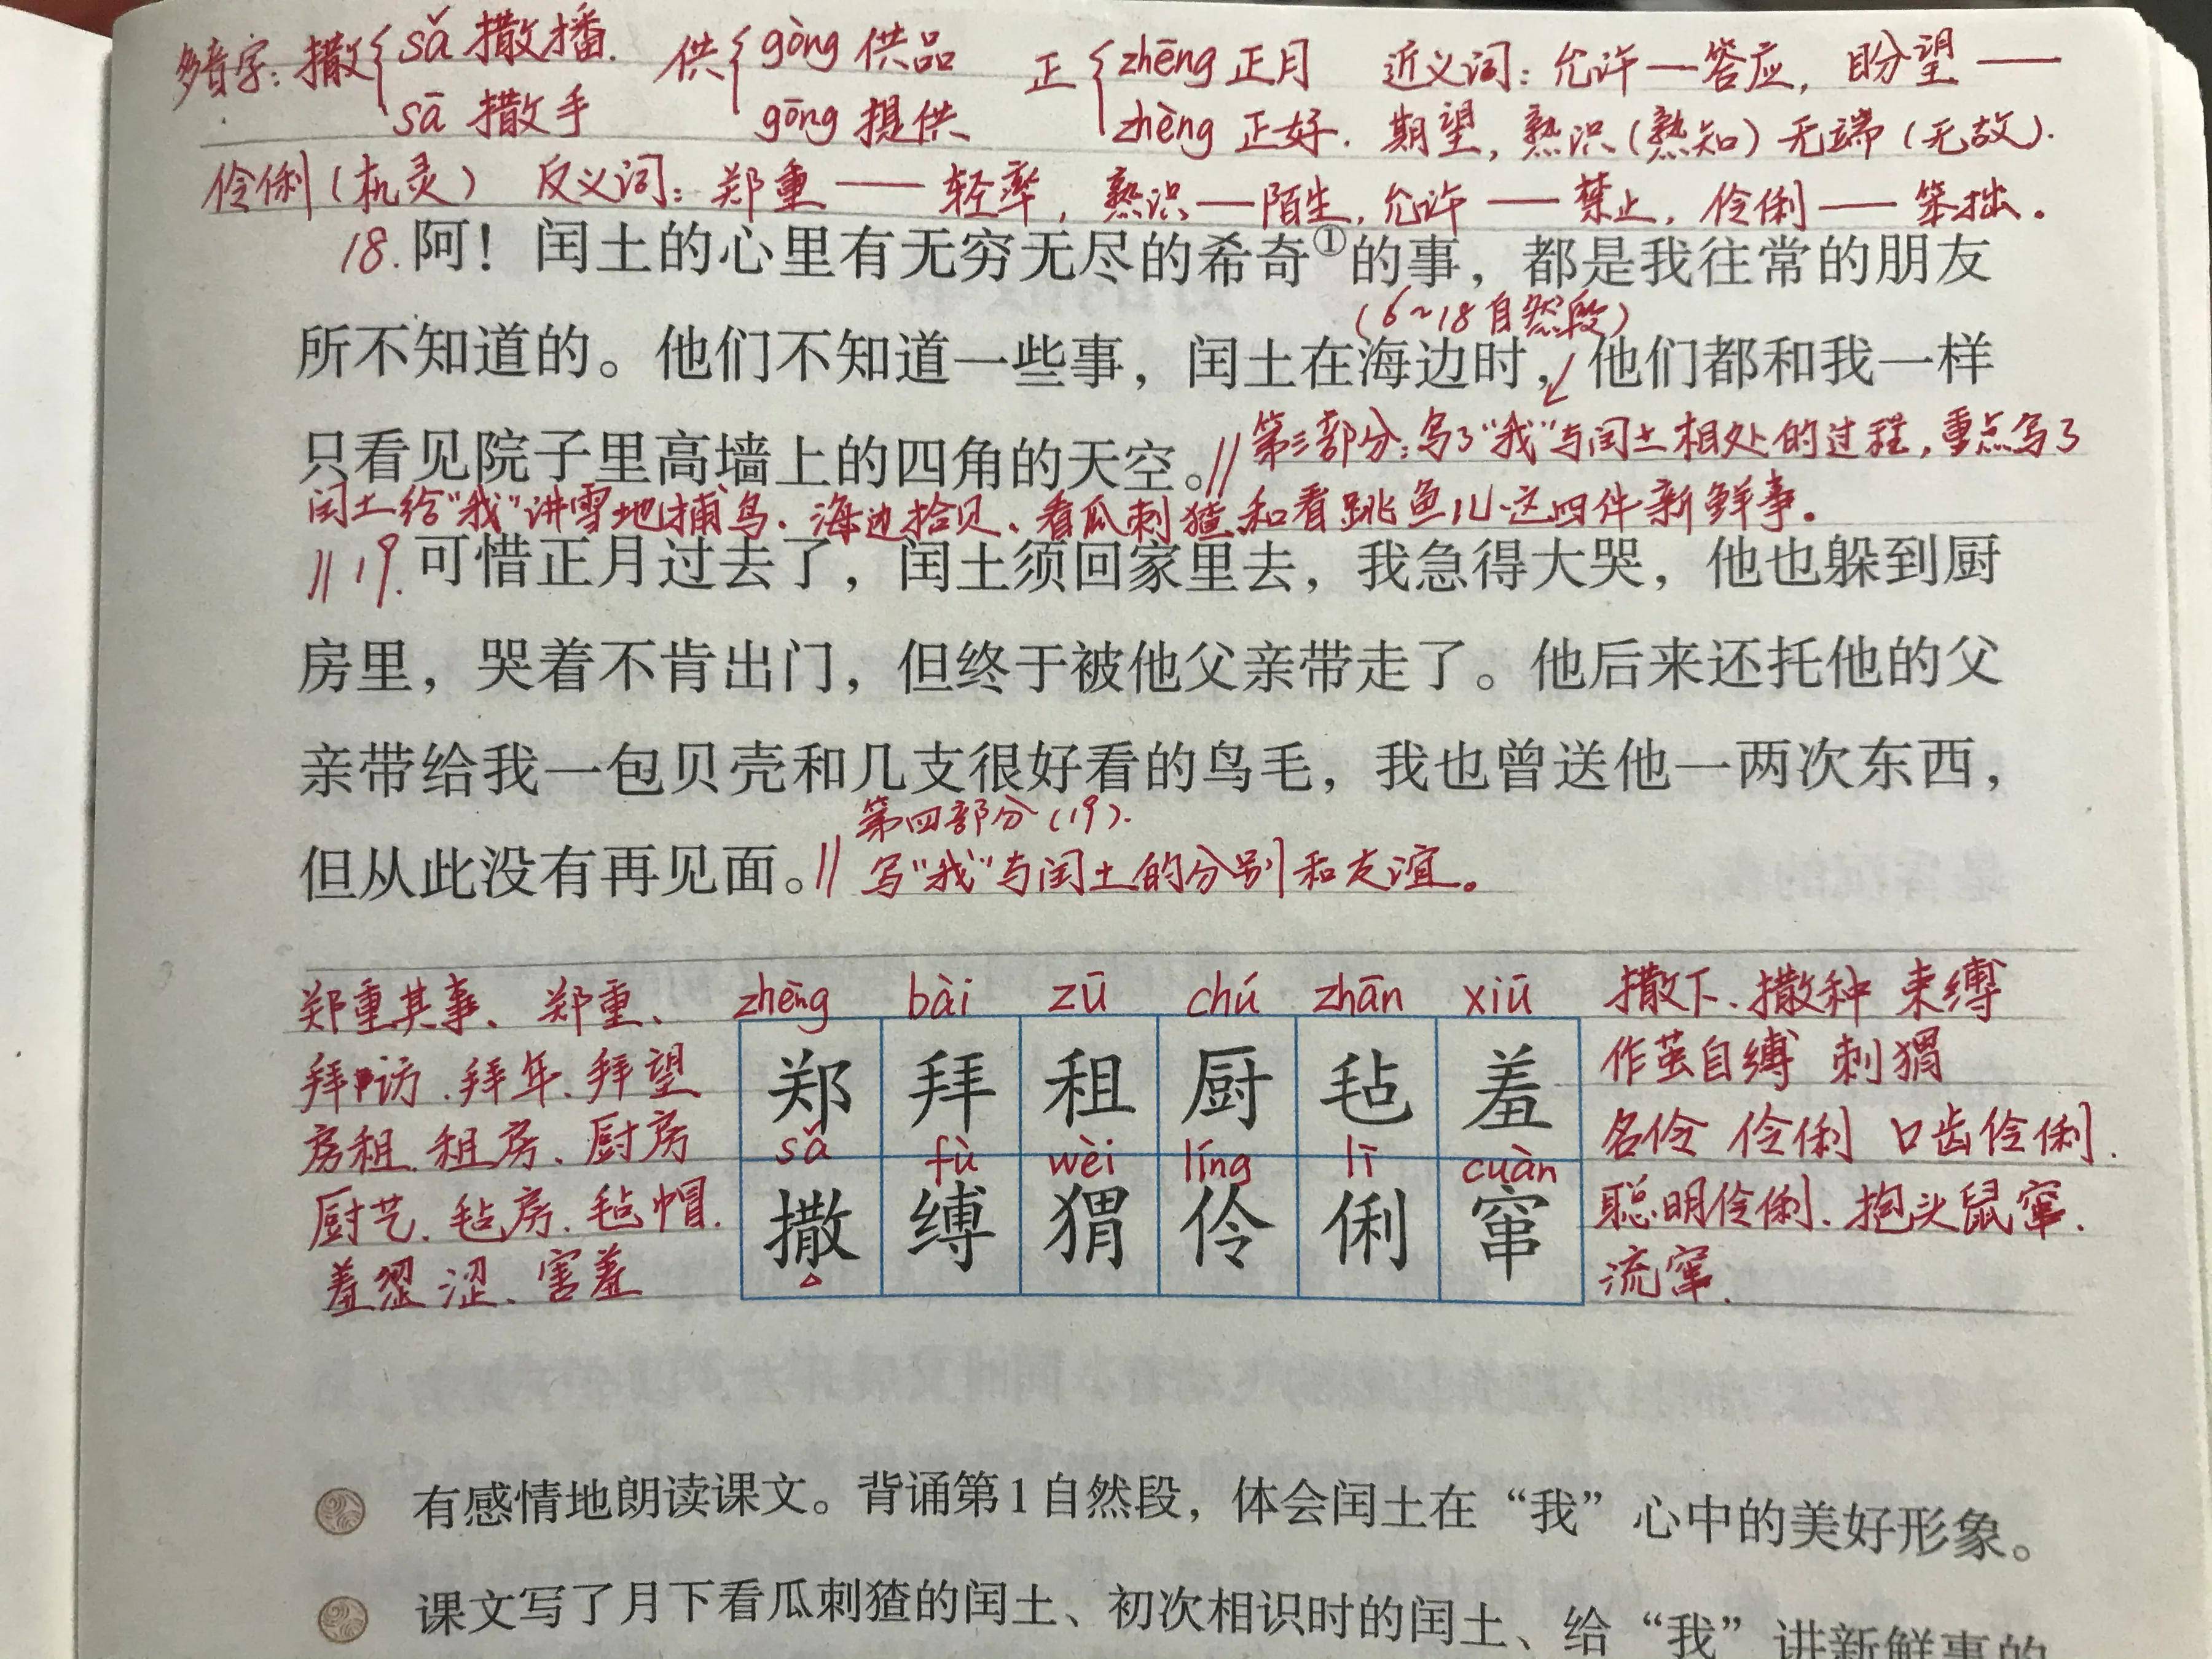 多音字：撒{sǎ 撒播. 供{gòng 供品 正{zhēng 正月 近义词：允许—答应，盼望——
sā 撒手 gōng 提供 zhèng 正好. 期望，熟识(熟知) 无端(无故).
伶俐(机灵) 反义词：郑重——轻率，熟识—陌生，允许——禁止，伶俐——笨拙。
18.阿！闰土的心里有无穷无尽的希奇①的事，都是我往常的朋友
(6~18自然段)
所不知道的。他们不知道一些事，闰土在海边时，他们都和我一样
只看见院子里高墙上的四角的天空。// 第三部分：写了“我”与闰土相处的过程，重点写了
闰土给“我”讲雪地捕鸟、海边拾贝、看瓜刺猹和看跳鱼儿这四件新鲜事。
// 19.可惜正月过去了，闰土须回家里去，我急得大哭，他也躲到厨
房里，哭着不肯出门，但终于被他父亲带走了。他后来还托他的父
亲带给我一包贝壳和几支很好看的鸟毛，我也曾送他一两次东西，
第四部分(19).
但从此没有再见面。// 写“我”与闰土的分别和友谊。
郑重其事、郑重、 zhēng bài zū chú zhān xiū 撒下、撒种 束缚
拜访、拜年、拜望 郑 拜 租 厨 毡 羞 作茧自缚 刺猬
房租、租房、厨房 sǎ fù wèi líng lī cuàn 名伶 伶俐 口齿伶俐.
厨艺、毡房、毡帽. 撒 缚 猬 伶 俐 窜 聪明伶俐、抱头鼠窜.
羞涩 涩、害羞 流窜.
有感情地朗读课文。背诵第1自然段，体会闰土在“我”心中的美好形象。
课文写了月下看瓜刺猹的闰土、初次相识时的闰土、给“我”讲新鲜事的